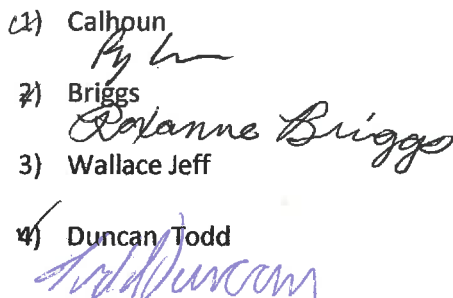 1) Calhoun
2) Briggs
Roxanne Briggs
3) Wallace Jeff
4) Duncan Todd
Todd Duncan